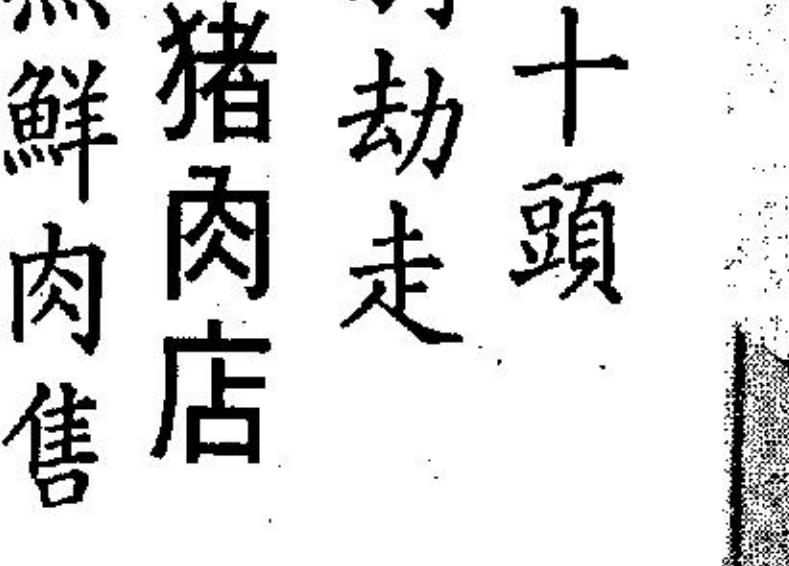 十頭
劫走
猪肉店
鮮肉售